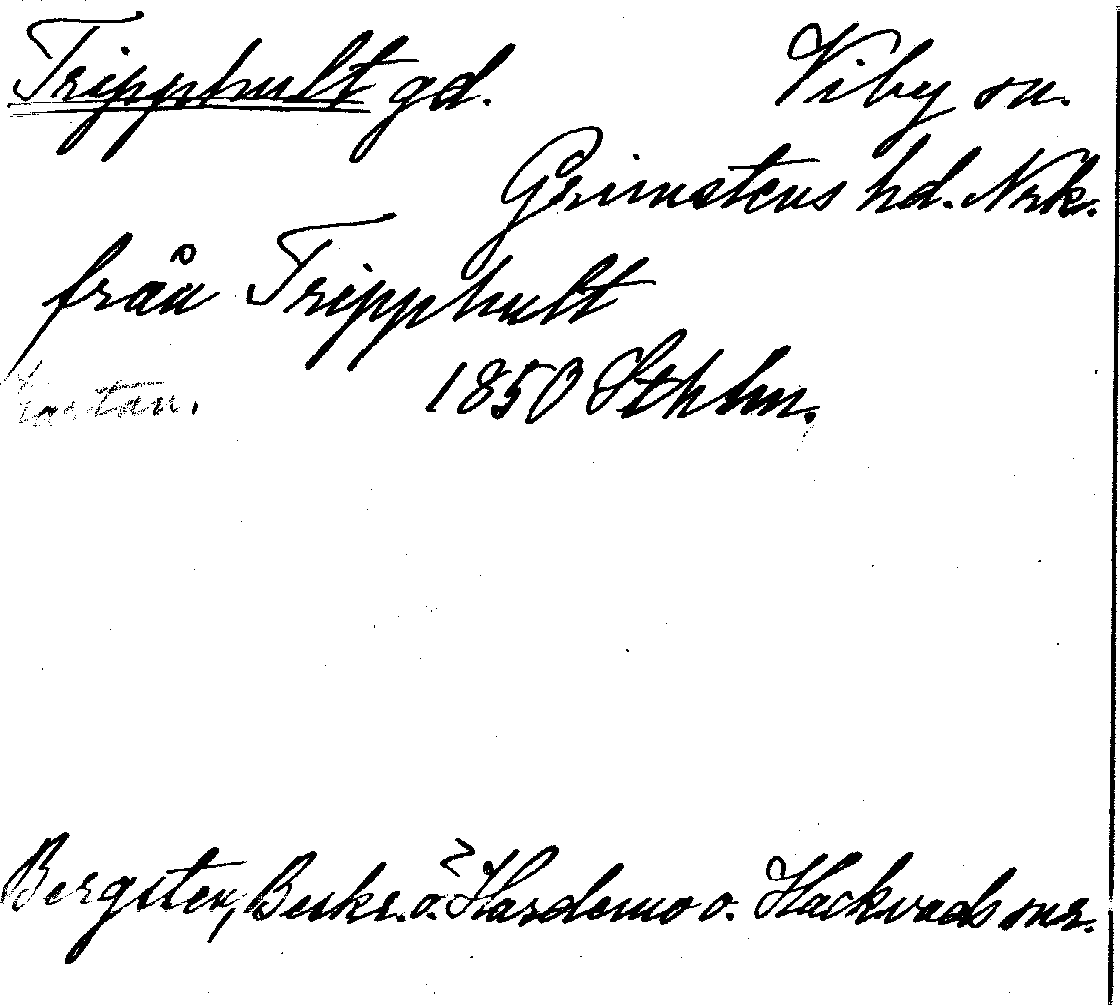 Tripphult gd. Viby sn.
Grimstens hd. Nrk.
från Tripphult
Kartan. 1850 Sthlm.
Bergsten, Beskr. ö. Hardemo o. Hackvads snr.